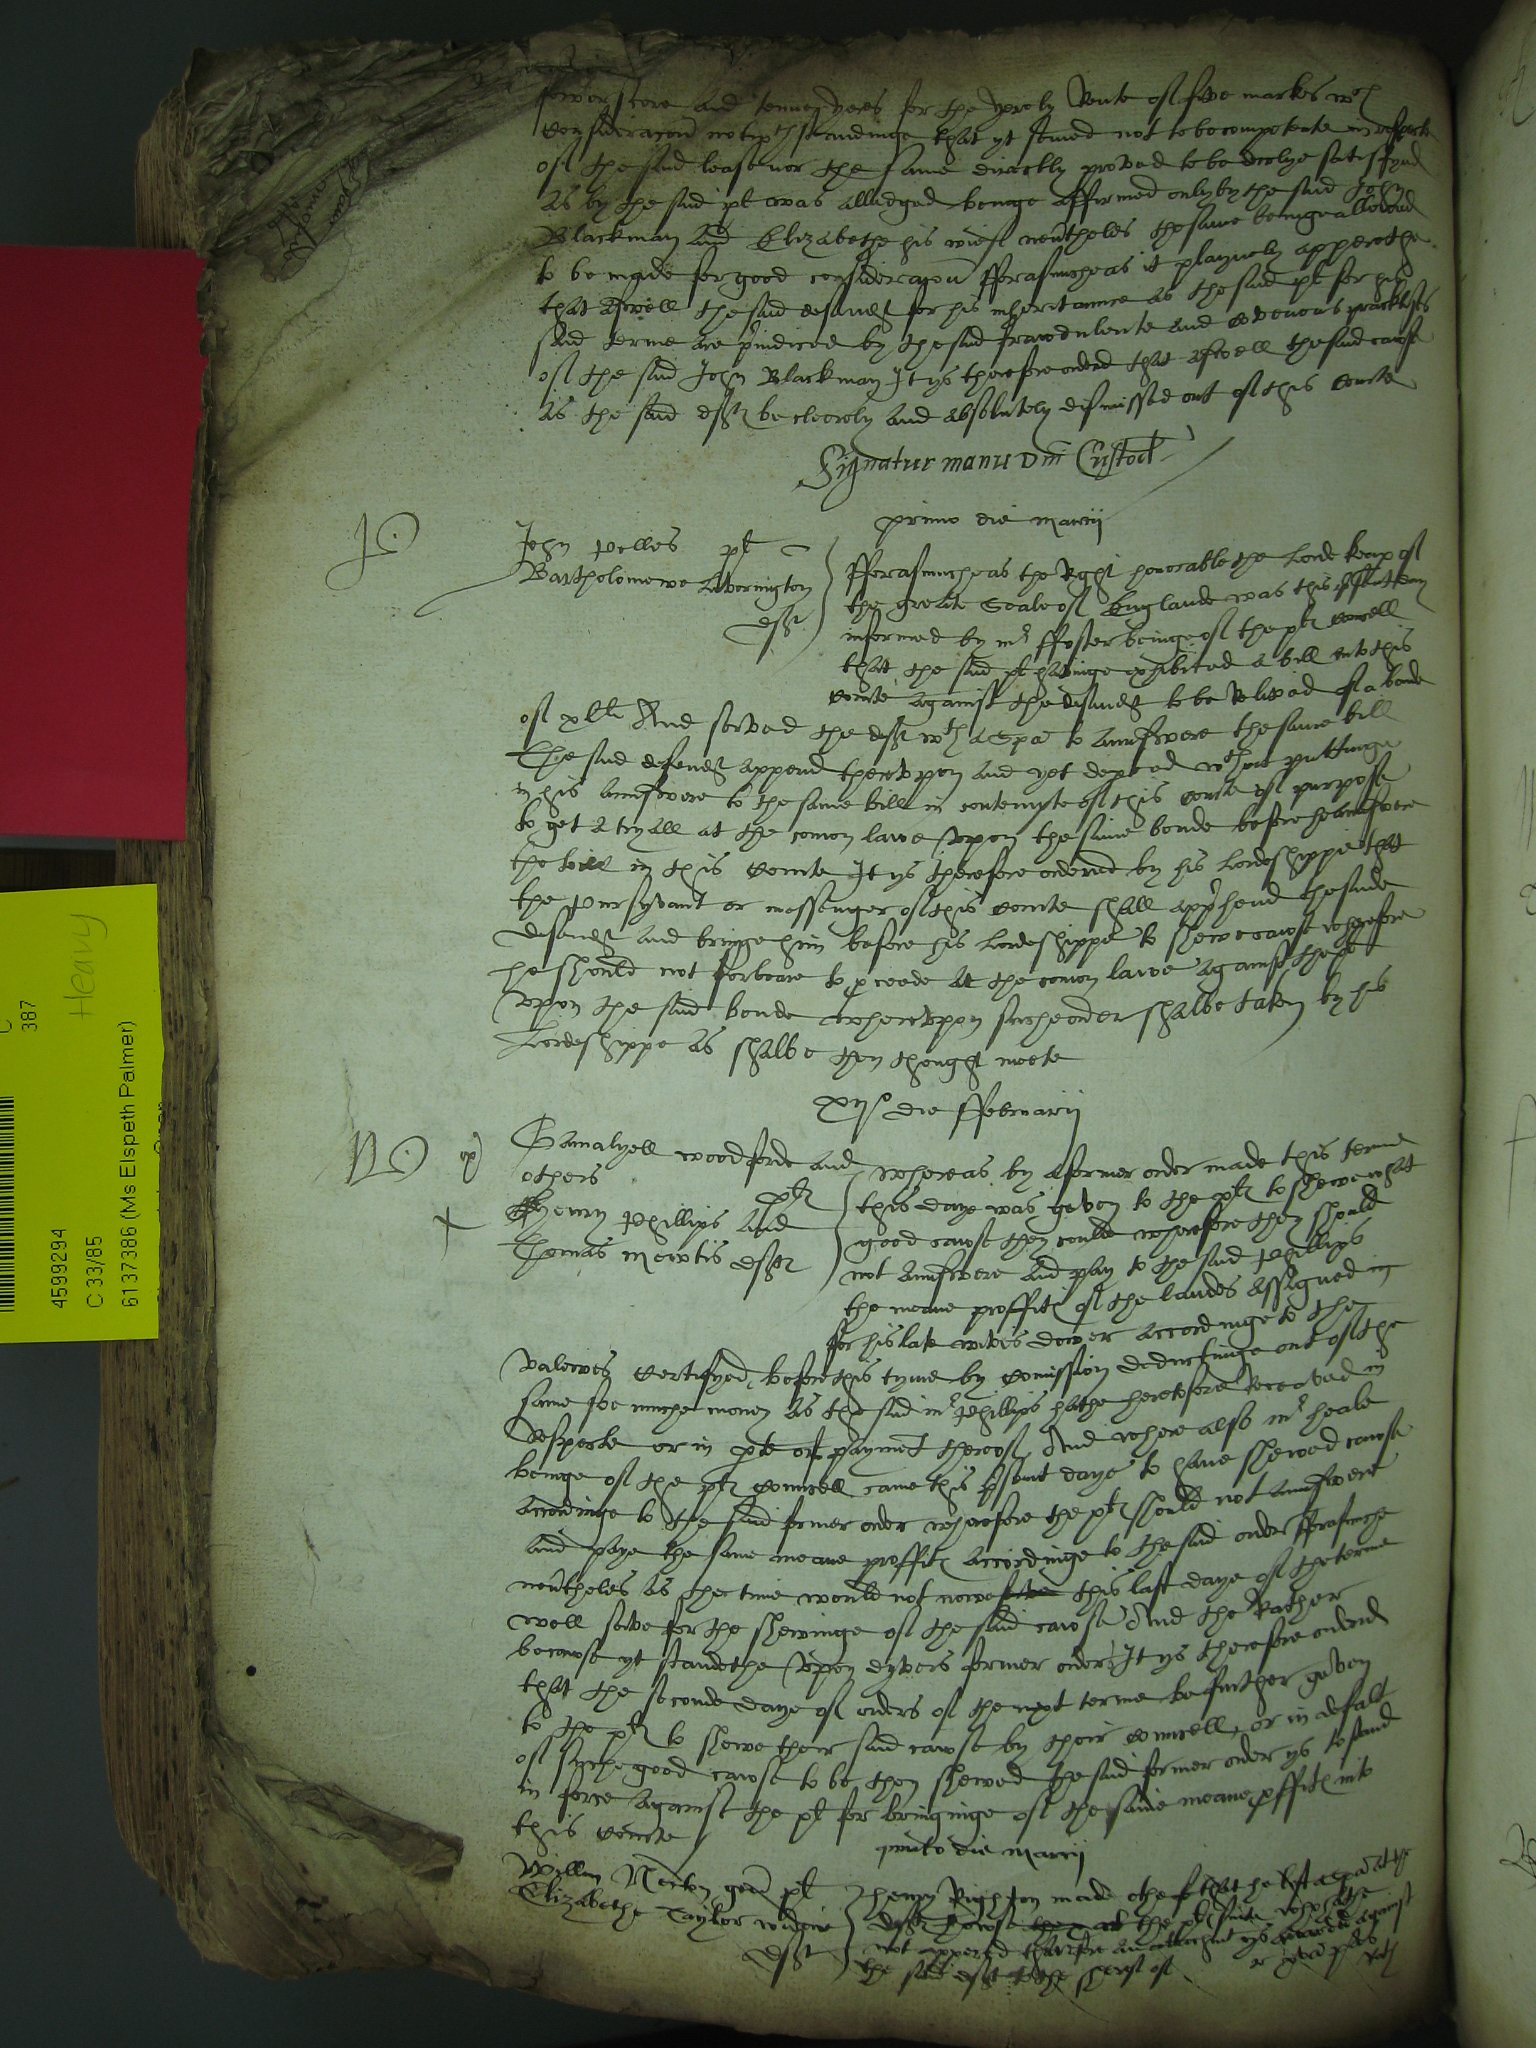 fower score and tenne yeres for the yerely Rente of five markes wch
consideracon notwthstandinge that yt semed not to be competente in respecte
of the said lease nor the same directly proved to be dulye satisfyed
as by the said pl was alledged beinge affirmed only by the said John
Blackman and Elizabethe his wief neutheles the same beinge allowed
to be made for good consideracon fforasmuche as it playnely apperethe
that aswell the said defendt for his inheritannce as the said pl for his
said terme are p'iudiced by the said frawdulente and covenous practises
of the said John Blackman It ys therefore ordred that aswell the said cawse
as the said deft be cleerely and absolutely dismissed out of this Courte
Signatur manu Dni Custod
primo die Marcij
John Pelles pl
Bartholomewe Averington
deft
fforasmuche as the Right honorable the Lorde Keap of
the greate Seale of Englande was this psent day
informed by mr ffoster beinge of the pl Councell
that the said pl havinge exhibited a bill into this
Courte against the defendt to be Relived of a bonde
of xl li And served the deft wth a Spa to aunswere the same bill
The said defendt appeared therevpon and yet depted wthout puttinge
in his aunswere to the same bill in contempte of this Courte of purpose
to get a tryall at the comon lawe vpon the same bonde before he aunswere
the bill in this Courte It ys therefore ordered by his Lordeshippe that
the Pursyvant or messenger of this Courte shall apphend the saide
defendt and bringe him before his Lordeshippe to shewe cawse wherefore
he should not forbeare to pceede at the comon lawe against the pl
vpon the said bonde wherevpon suche order shalbe taken by his
Lordeshippe as shalbe then thought meete
xijo die ffebruarij
Gamalyell Woodforde and
others
plts
Henry Phillips and
Thomas Mewtis defts
Whereas by a former order made this terme
this daye was geven to the plts to shewe what
good cawse they could wherefore they should
not aunswere and pay to the said Phillips
the meane proffits of the landes assigned in
for his late wives dower accordinge to the
valewes certifyed before this tyme by Comission deductinge out of the
same soe muche money as the said mr Phillips hathe heretofore Receaved in
Respecte or in pte of payment therof And where also mr Heale
beinge of the plts Councell came this psent daye to have shewed cawse
accordinge to the said former order wherefore the plts should not aunswere
and paye the same meane proffits accordinge to the said order fforasmuche
neutheles as the time would not nowe this last daye of the terme
well serve for the shewinge of the said cawse And the Rather
becawse yt standethe vpon dyvers former orders It ys therefore ordred
that the seconde daye of orders of the next terme be further geven
to the plts to shewe their said cawse by their Councell, or in defalt
of suche good cawse to be then shewed the said former order ys to stand
in force against the pl for bringinge of the same meane pffits into
this Courte
primo die Marcij
Willm Norton gen pl
Elizabethe Taylor widowe
deft
Henry Righton made othe that he left a spa at the
defts howse the plts suite who hathe
not appered therfore an attachmt ys awarded against
the said deft to the Sheref of
4599294
C 33/85
6137386 (Ms Elspeth Palmer)
C
387
Heavy